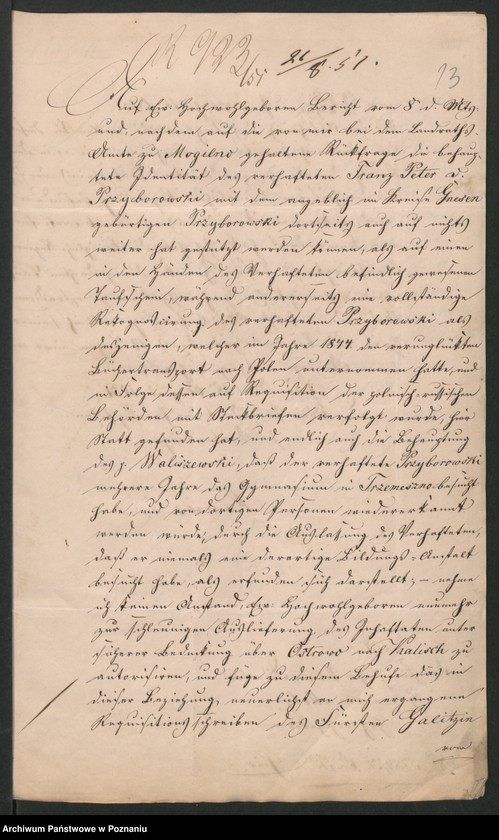 R 923/51 21/8. 51.
13
Auf Ew: Hochwohlgeboren Bericht vom 8 d. Mts:
und, nachdem auf die von mir bei dem Landraths-
Amte zu Mogilno gehaltene Rückfrage die behaup-
tete Identität des verhafteten Franz Peter v.
Przyborowski mit dem angeblich im Kreise Gnesen
gebürtigen Przyborowski dortseits auch auf nichts
weiter hat gestützt werden können, als auf einen
in den Händen des Verhafteten befindlich gewesenen
Taufschein, während andererseits eine vollständige
Rekognoscirung des verhafteten Przyborowski als
desjenigen, welcher im Jahre 1844 den verunglückten
Büchertransport nach Polen unternommen hatte, und
in Folge dessen auf Requisition der polnisch-russischen
Behörden mit Steckbriefen verfolgt wurde, hier
Statt gefunden hat, und endlich auch die Behauptung
des p. Waliszewski, daß der verhaftete Przyborowski
mehrere Jahre das Gymnasium in Trzemeszno besucht
habe, und von dortigen Personen wiedererkannt
werden würde, durch die Auslassung des Verhafteten,
daß er niemals eine derartige Bildungs-Anstalt
besucht habe, als erfunden sich darstellt; – nehme
ich keinen Anstand, Ew: Hochwohlgeboren nunmehr
zur schleunigen Auslieferung des Inhaftaten unter
sicherer Bedeckung über Ostrowo nach Kalisch zu
autorisiren, und füge zu diesem Behufe das in
dieser Beziehung neuerlichst an mich ergangene
Requisitionsschreiben des Fürsten Galitzin
vom
Archiwum Państwowe w Poznaniu